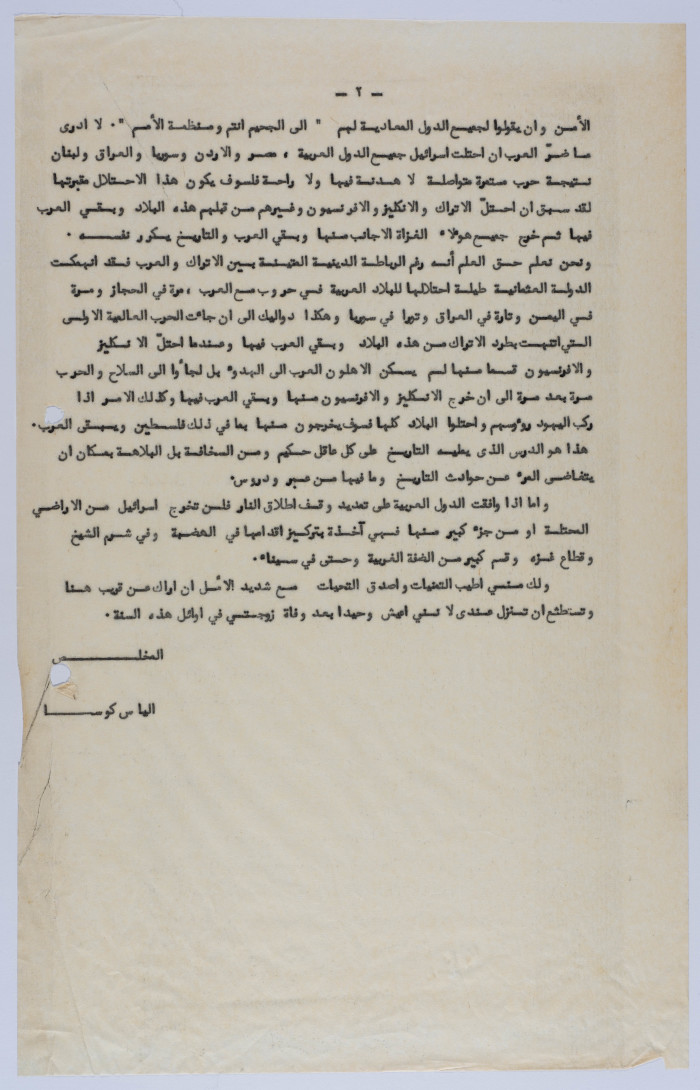 - ٢ -
الأمن وان يقولوا لجميع الدول المعادية لهم " الى الجحيم انتم ومنظمة الأمم ". لا ادرى
ما ضرّ العرب ان احتلت اسرائيل جميع الدول العربية ، مصر والاردن وسوريا والعراق ولبنان
نتيجة حرب مستمرة متواصلة لا هدنة فيها ولا راحة فلسوف يكون هذا الاحتلال مقبرتها
لقد سبق ان احتلّ الاتراك والانكليز والافرنسيون وغيرهم من قبلهم هذه البلاد وبقي العرب
فيها ثم خرج جميع هولاء الغزاة الاجانب منها وبقي العرب والتاريخ يسكرر نفسه .
ونحن نعلم حق العلم أنه رغم الرباطة الدينية المتينة بين الاتراك والعرب فقد انهمكت
الدولة العثمانية طيلة احتلالها للبلاد العربية في حروب مع العرب ، مرة في الحجاز ومرة
في اليمن وتارة في العراق وتبرا في سبريا وهكذا دواليك الى ان جائت الحرب العالمية الاولى
التي انتهت بطرد الاتراك من هذه البلاد وبقي العرب فيها وعندما احتلّ الانكليز
والافرنسيون قسما منها لم يسكن الاهلون العرب الى الهدوء بل لجأوا الى السلاح والحرب
مرة بعد مرة الى ان خرج الانكليز والافرنسيون منها وبقي العرب فيها وكذلك الامر اذا
ركب اليهود روءوسهم واحتلوا البلاد كلها فسوف يخرجون منها بما في ذلك فلسطين وسيبقى العرب.
هذا هو الدرس الذى يمليه التاريخ على كل عاقل حكيم ومن السخافة بل البلاهة بمكان ان
يتغاضى المرء عن حوادث التاريخ وما فيها من عبر ودروس.
واما اذا وافقت الدول العربية على تمديد وقف اطلاق النار فلن تخرج اسرائيل من الاراضي
المحتلة او من جزء كبير منها فهي آخذة بتركيز اقدامها في الهضبة وفي شرم الشيخ
وقطاع غزه وقسم كبير من الضفة الغربية وحتى في سيناء.
ولك مني اطيب التمنيات واصدق التحيات مع شديد الأمل ان اراك عن قريب هنا
وتستطع ان تنزل عندى لانني اعيش وحيدا بعد وفاة زوجتي في اوائل هذه السنة .
المخلص
الياس كوسا